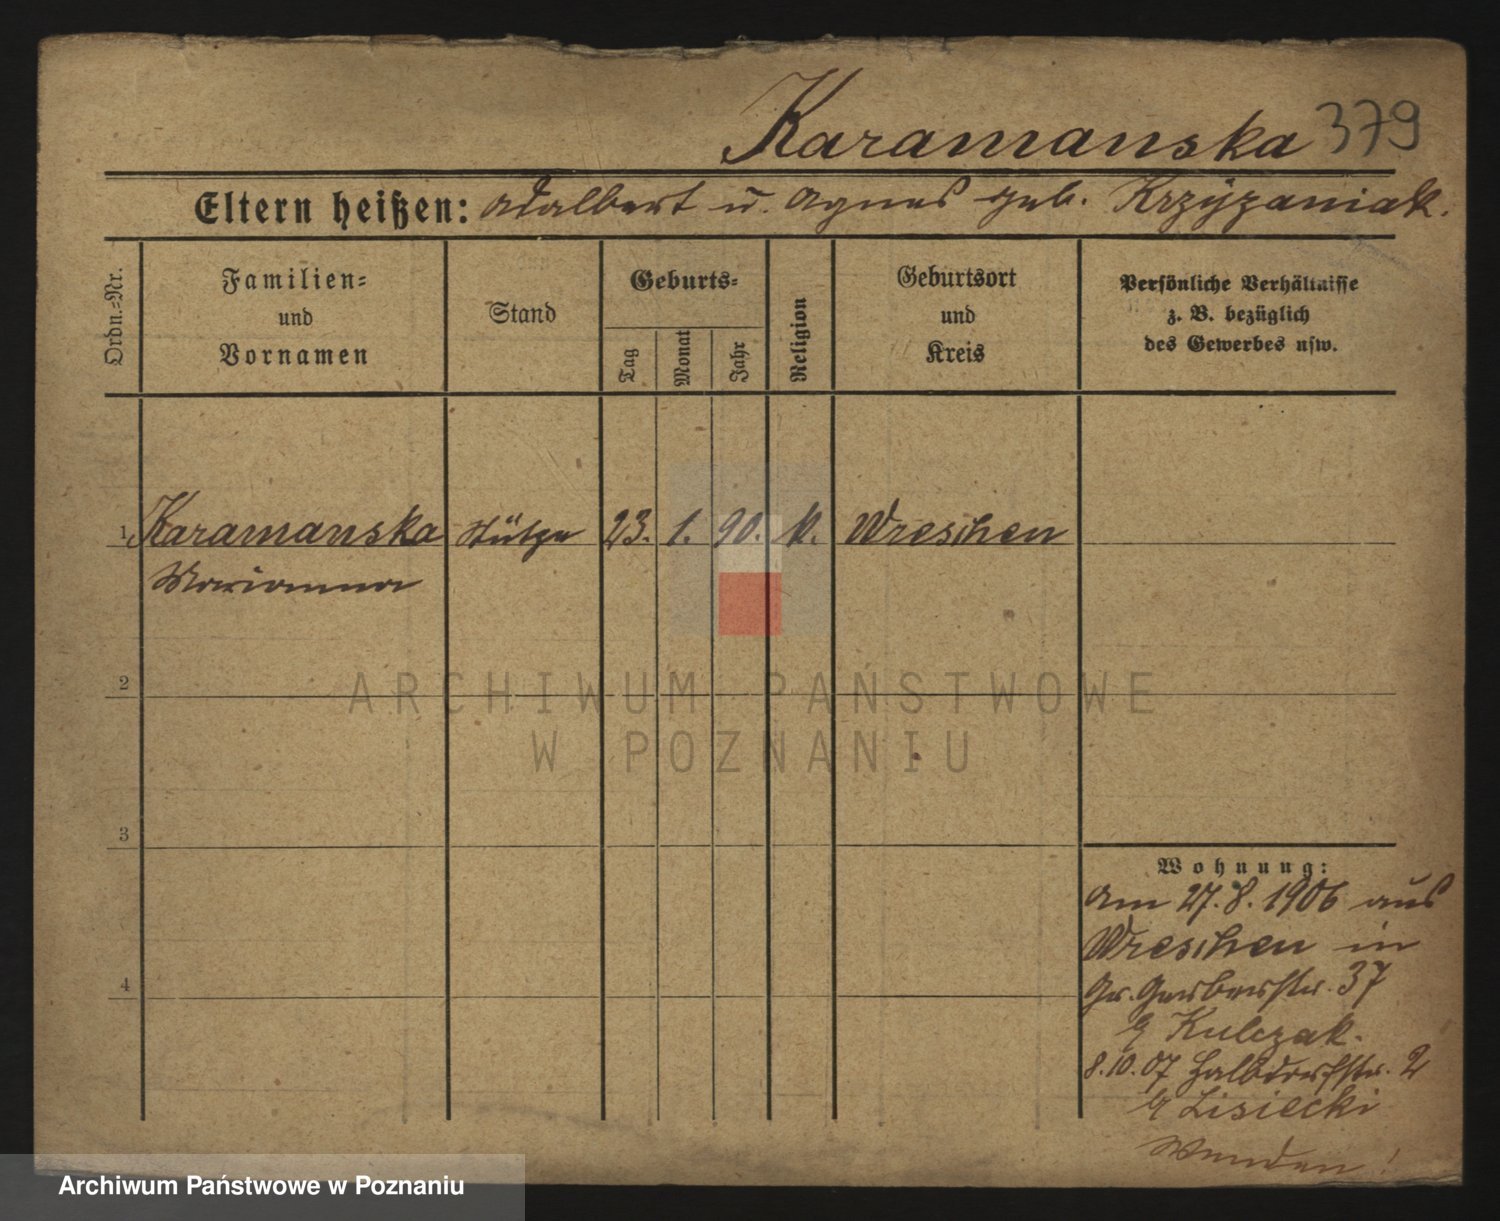 Karamanska 379
Eltern heißen: Adalbert u. Agnes geb. Krzyzaniak.
Ordn.=Nr.
Familien=
und
Vornamen
Stand
Geburts=
Tag
Monat
Jahr
Religion
Geburtsort
und
Kreis
Persönliche Verhältnisse
z. B. bezüglich
des Gewerbes usw.
1 Karamanska Stütze 23. 1. 90. k. Wreschen
Marianna
2
3
4
Wohnung:
Am 27.8.1906 aus
Wreschen in
Gr. Gerberstr. 37
Kulczak.
8.10.07 Halbdorfstr. 2
Lisiecki
Wenden!
ARCHIWUM PAŃSTWOWE
W POZNANIU
Archiwum Państwowe w Poznaniu